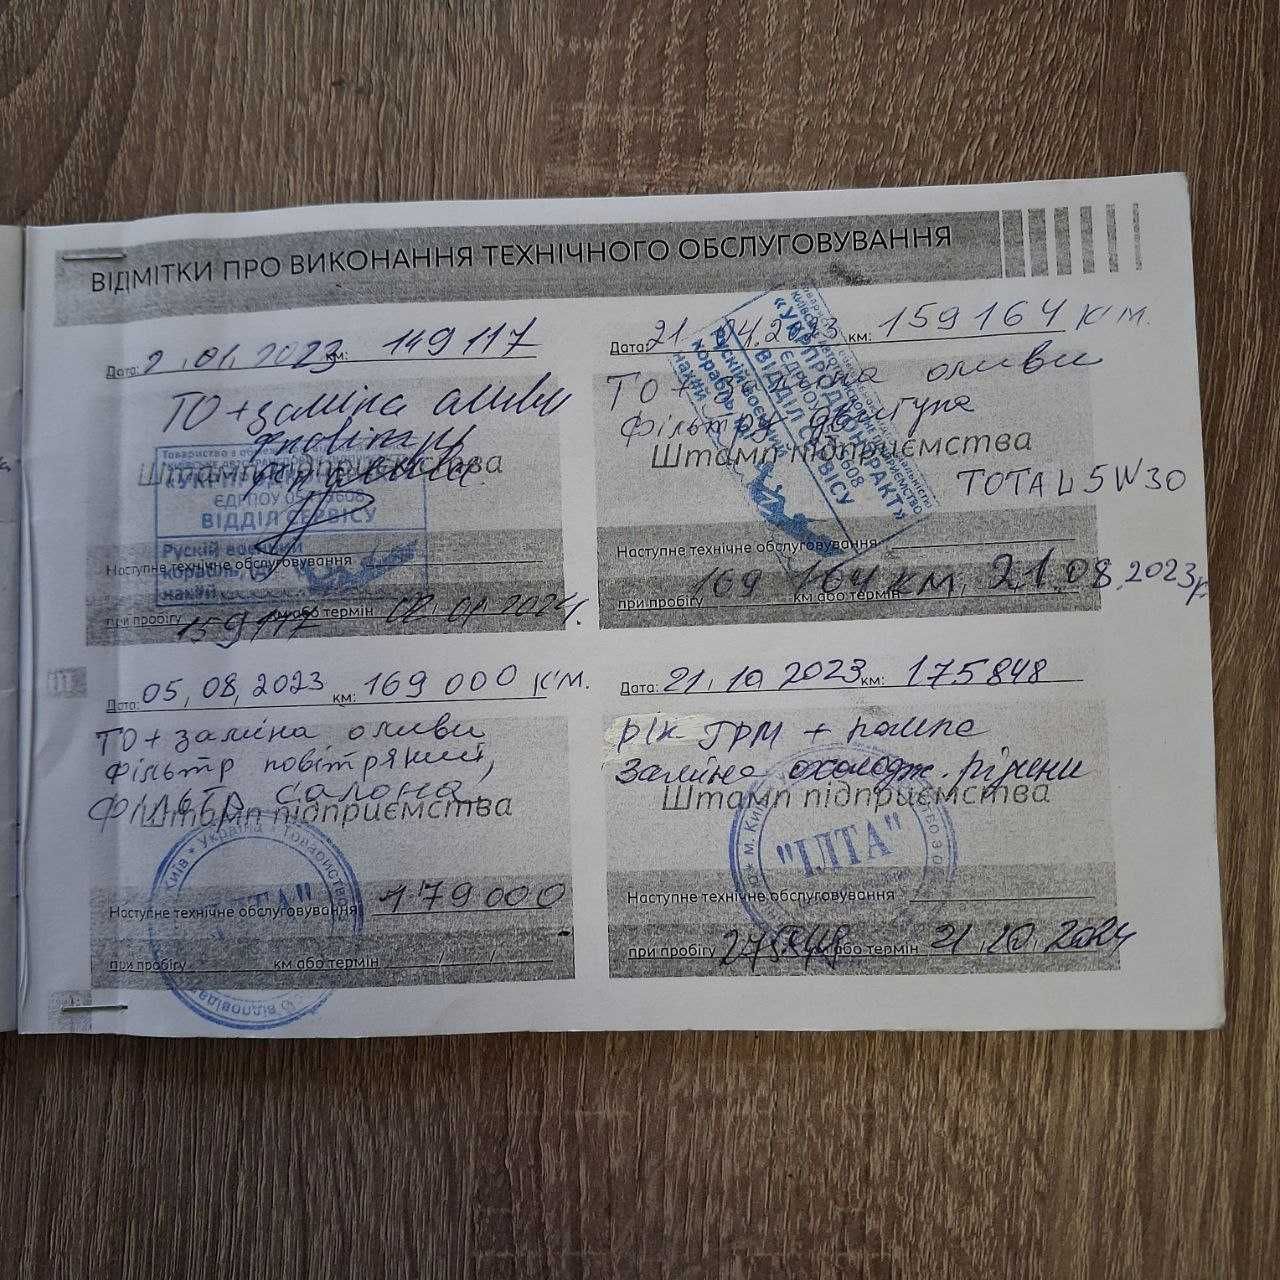 ВІДМІТКИ ПРО ВИКОНАННЯ ТЕХНІЧНОГО ОБСЛУГОВУВАННЯ
Дата: 2.01.2023 км: 149117
ТО + заміна оливи
Штамп підприємства
ЄДРПОУ
ВІДДІЛ СЕРВІСУ
Рускій воєнний
корабль,
нахуй
Наступне технічне обслуговування
при пробігу 159117 км або термін 02.01.2024г.
Дата: 21.04.2023 км: 159164 км.
ТО + заміна оливи
фільтру двигуна
Штамп підприємства
"УКРПРОДКОНТРАКТ"
ЄДРПОУ
ВІДДІЛ СЕРВІСУ
Рускій воєнний
корабль
TOTAL 5W30
Наступне технічне обслуговування
при пробігу 169 164 км або термін км, 21.08.2023р
Дата: 05,08,2023 км: 169 000 км.
ТО + заміна оливи
Фільтр повітряний,
фільтр салона
Штамп підприємства
Київ * Україна * Товариство
Наступне технічне обслуговування 179000
при пробігу км або термін / /
Дата: 21.10 2023 км: 175848
р/к ГРМ + помпа
заміна охолодж. рідини
Штамп підприємства
"ІЛТА"
Наступне технічне обслуговування
при пробігу 275848 км або термін 21.10.2024